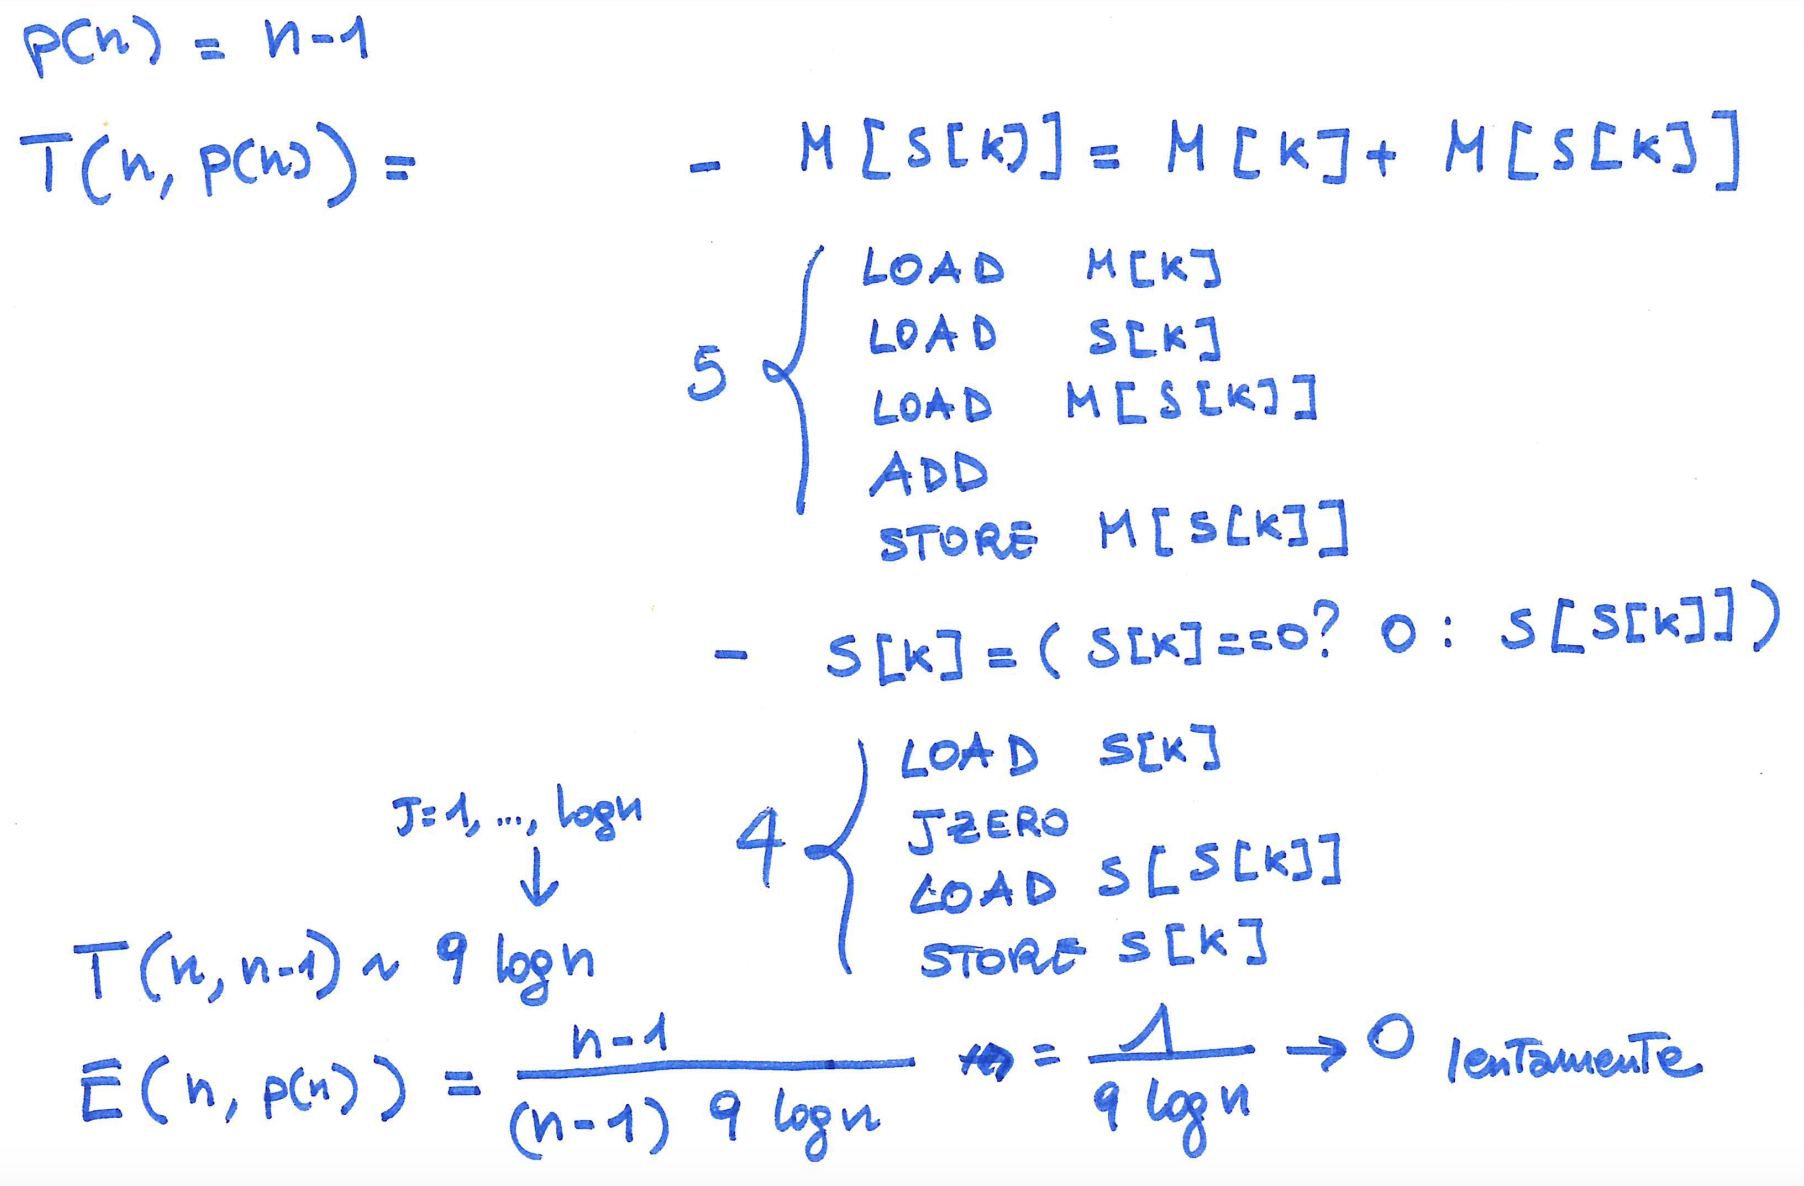 p(n) = n-1
T(n, p(n)) =
- M[S[K]] = M[K] + M[S[K]]
5 {
LOAD M[K]
LOAD S[K]
LOAD M[S[K]]
ADD
STORE M[S[K]]
- S[K] = ( S[K]==0? 0 : S[S[K]])
4 {
LOAD S[K]
JZERO
LOAD S[S[K]]
STORE S[K]
J=1, ..., logn
↓
T(n, n-1) ~ 9 logn
E(n, p(n)) = n-1 / (n-1) 9 logn = 1 / 9 logn → 0 lentamente